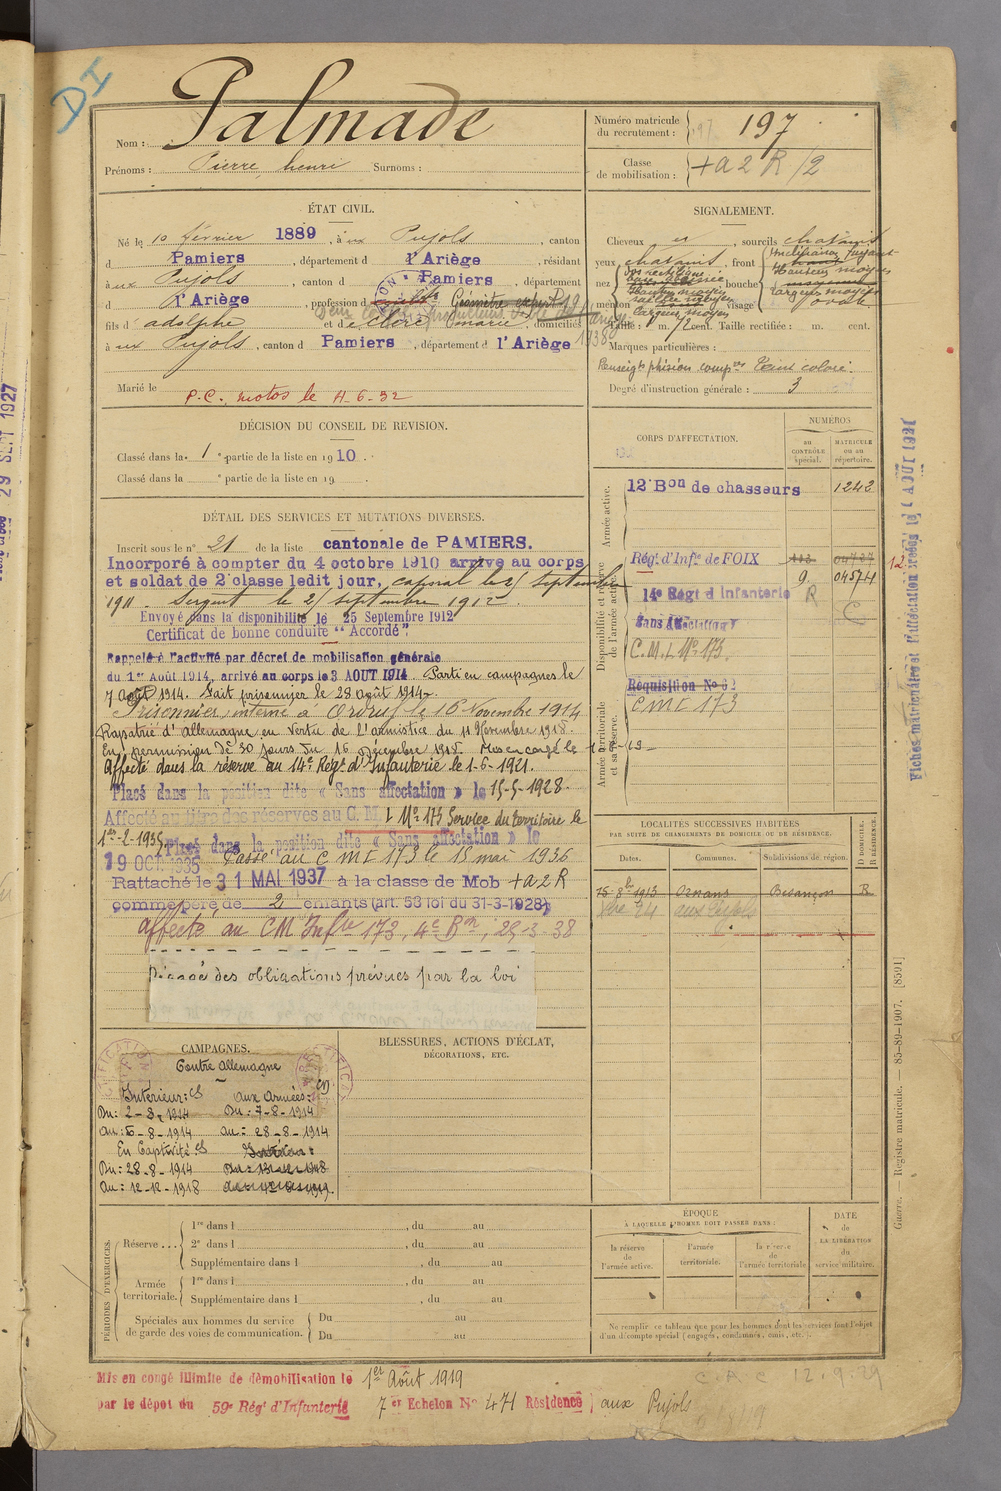 DI
Nom : Palmade
Prénoms : Pierre, henri Surnoms :
Numéro matricule du recrutement : 197
Classe de mobilisation : +a 2 R/2
ÉTAT CIVIL.
Né le 10 février 1889, à ux Pujols, canton
d Pamiers, département d l'Ariège, résidant
à ux Pujols, canton d Pamiers, département
d l'Ariège, profession d
fils d'adolphe et d marie, domiciliés
à ux Pujols, canton d Pamiers, département d l'Ariège
Marié le
P.C. motos le 4-6-32
SIGNALEMENT.
Cheveux , sourcils chatains
yeux chatains, front
nez bouche
menton visage ovale
Taille : 1 m. 72 cent. Taille rectifiée : m. cent.
Marques particulières :
Teint coloré.
Degré d'instruction générale : 3
DÉCISION DU CONSEIL DE REVISION.
Classé dans la 1e partie de la liste en 1910.
Classé dans la e partie de la liste en 19
DÉTAIL DES SERVICES ET MUTATIONS DIVERSES.
Inscrit sous le n° 21 de la liste cantonale de PAMIERS.
Incorporé à compter du 4 octobre 1910 arrive au corps
et soldat de 2e classe ledit jour, caporal le 25 septembre
1911. Sergent le 25 septembre 1912.
Envoyé dans la disponibilité le 25 Septembre 1912
Certificat de bonne conduite "Accordé".
Rappelé à l'activité par décret de mobilisation générale
du 1er Août 1914, arrivé au corps le 3 AOUT 1914. Parti en campagnes le
7 août 1914. Fait prisonnier le 28 août 1914.
Prisonnier, interné à Ordruf le 16 Novembre 1914
Rapatrié d'allemagne en vertu de l'armistice du 11 Novembre 1918.
En permission de 30 jours du 16 Décembre 1918. Mis en congé le
Affecté dans la réserve au 14e Régt d'Infanterie le 1-6-1921.
Placé dans la position dite « Sans affectation » le 15-5-1928.
Affecté au titre des réserves au C. M. I. No 173 Service du territoire le
1er-2-1935. Placé dans la position dite « Sans affectation » le
19 OCT 1935 Passé au C M I 173 le 15 mai 1936
Rattaché le 31 MAI 1937 à la classe de Mob +a2R
comme père de 2 enfants (art. 58 loi du 31-3-1928)
affecté au CM Infie 173, 4e Bon, 25-3-38
Dégagé des obligations prévues par la loi
CORPS D'AFFECTATION.
NUMÉROS
au CONTRÔLE spécial.
MATRICULE ou au répertoire.
Armée active.
12e Bon de chasseurs 1242
Disponibilité et réserve de l'armée active.
Régt d'Infie de FOIX
9. 04574
14e Régt d Infanterie R
Sans Affectation C
C.M.I. No 173.
Armée territoriale et sa réserve.
Réquisition No 62
CMI 173
LOCALITÉS SUCCESSIVES HABITÉES
PAR SUITE DE CHANGEMENTS DE DOMICILE OU DE RÉSIDENCE.
Dates. Communes. Subdivisions de région. D DOMICILE. R RÉSIDENCE.
15-8bre 1913 Ornans Besançon R
aux Pujols
CAMPAGNES.
Contre Allemagne
Intérieur : CS aux Armées :
Du : 2-8-1914 Du : 7-8-1914
au : 6-8-1914 au : 28-8-1914
En Captivité CS
Du : 28-8-1914
au : 12-12-1918
BLESSURES, ACTIONS D'ÉCLAT,
DÉCORATIONS, ETC.
PÉRIODES D'EXERCICES.
Réserve ... 1re dans l , du au
2e dans l , du au
Supplémentaire dans l , du au
Armée territoriale. 1re dans l , du au
Supplémentaire dans l , du au
Spéciales aux hommes du service de garde des voies de communication. Du au
Du au
ÉPOQUE
À LAQUELLE L'HOMME DOIT PASSER DANS :
la réserve de l'armée active.
l'armée territoriale.
la réserve de l'armée territoriale
DATE de LA LIBÉRATION du service militaire.
Ne remplir ce tableau que pour les hommes dont les services font l'objet
d'un décompte spécial (engagés, condamnés, omis, etc.).
Mis en congé illimité de démobilisation le 1er Août 1919
par le dépot du 59e Régt d'Infanterie 7e Echelon No 471 Résidence aux Pujols
C.A.C 12.9.29
Guerre. — Registre matricule. — 85-89-1907. [8591]
29 SEPT 1927